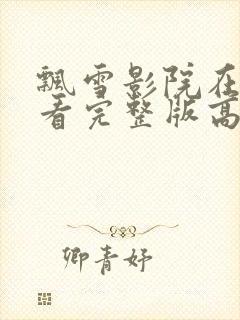 飘雪影院在
看完整版高
卿青妤